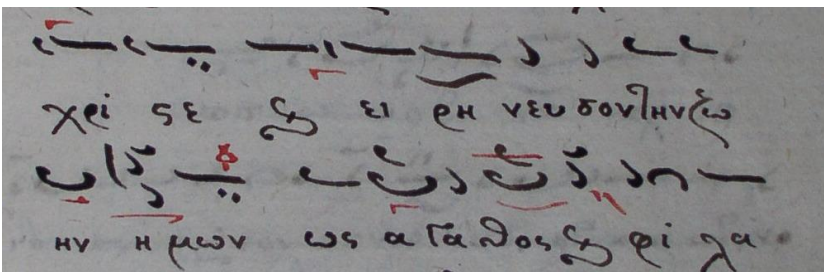 χρι ςε ϗ ει ρη νευσον την ζω
ην η μων ως α γα θος ϗ φι λα